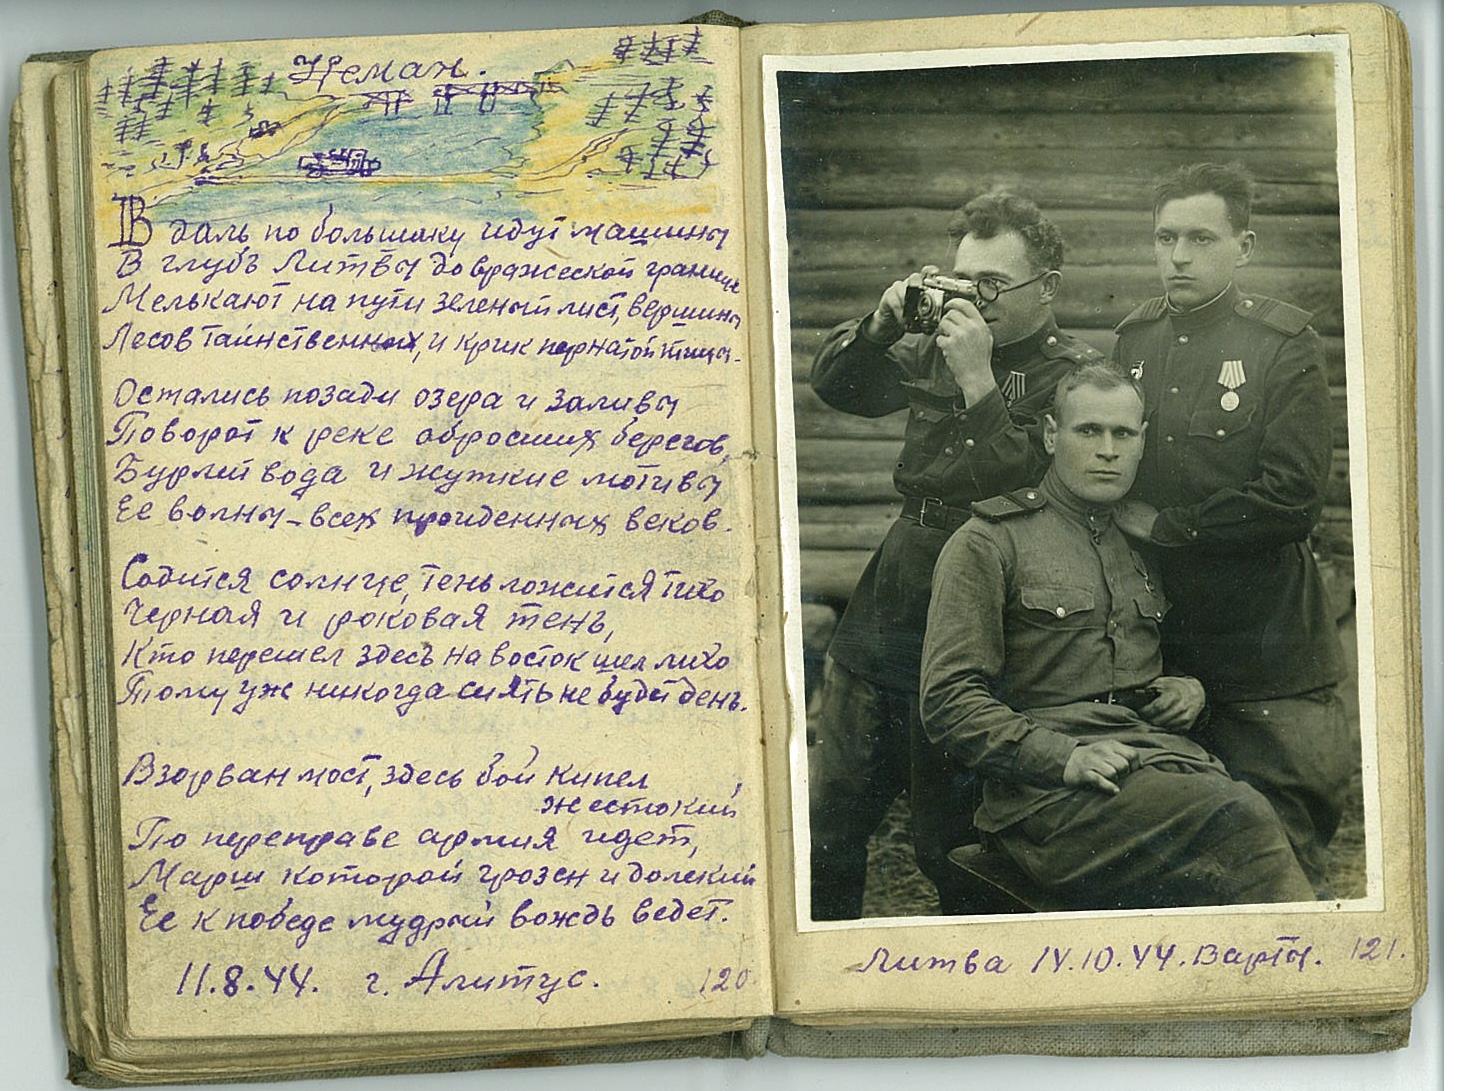 Неман.
Вдаль по большаку идут машины
В глубь Литвы до вражеской границы
Мелькают на пути зеленый лист, вершины
Лесов таинственных, и крик пернатой птицы.
Остались позади озера и заливы
Поворот к реке обросших берегов,
Бурлит вода и жуткие мотивы
Ее волны – всех пройденных веков.
Садится солнце, тень ложится тихо
Черная и роковая тень,
Кто перешел здесь на восток шел лихо
Тому уж никогда сиять не будет день.
Взорван мост, здесь бой кипел
жестокий
По переправе армия идет,
Марш которой грозен и далекий
Ее к победе мудрый вождь ведет.
11.8.44. г. Алитус.
120
Литва 14.10.44. Варты.
121.